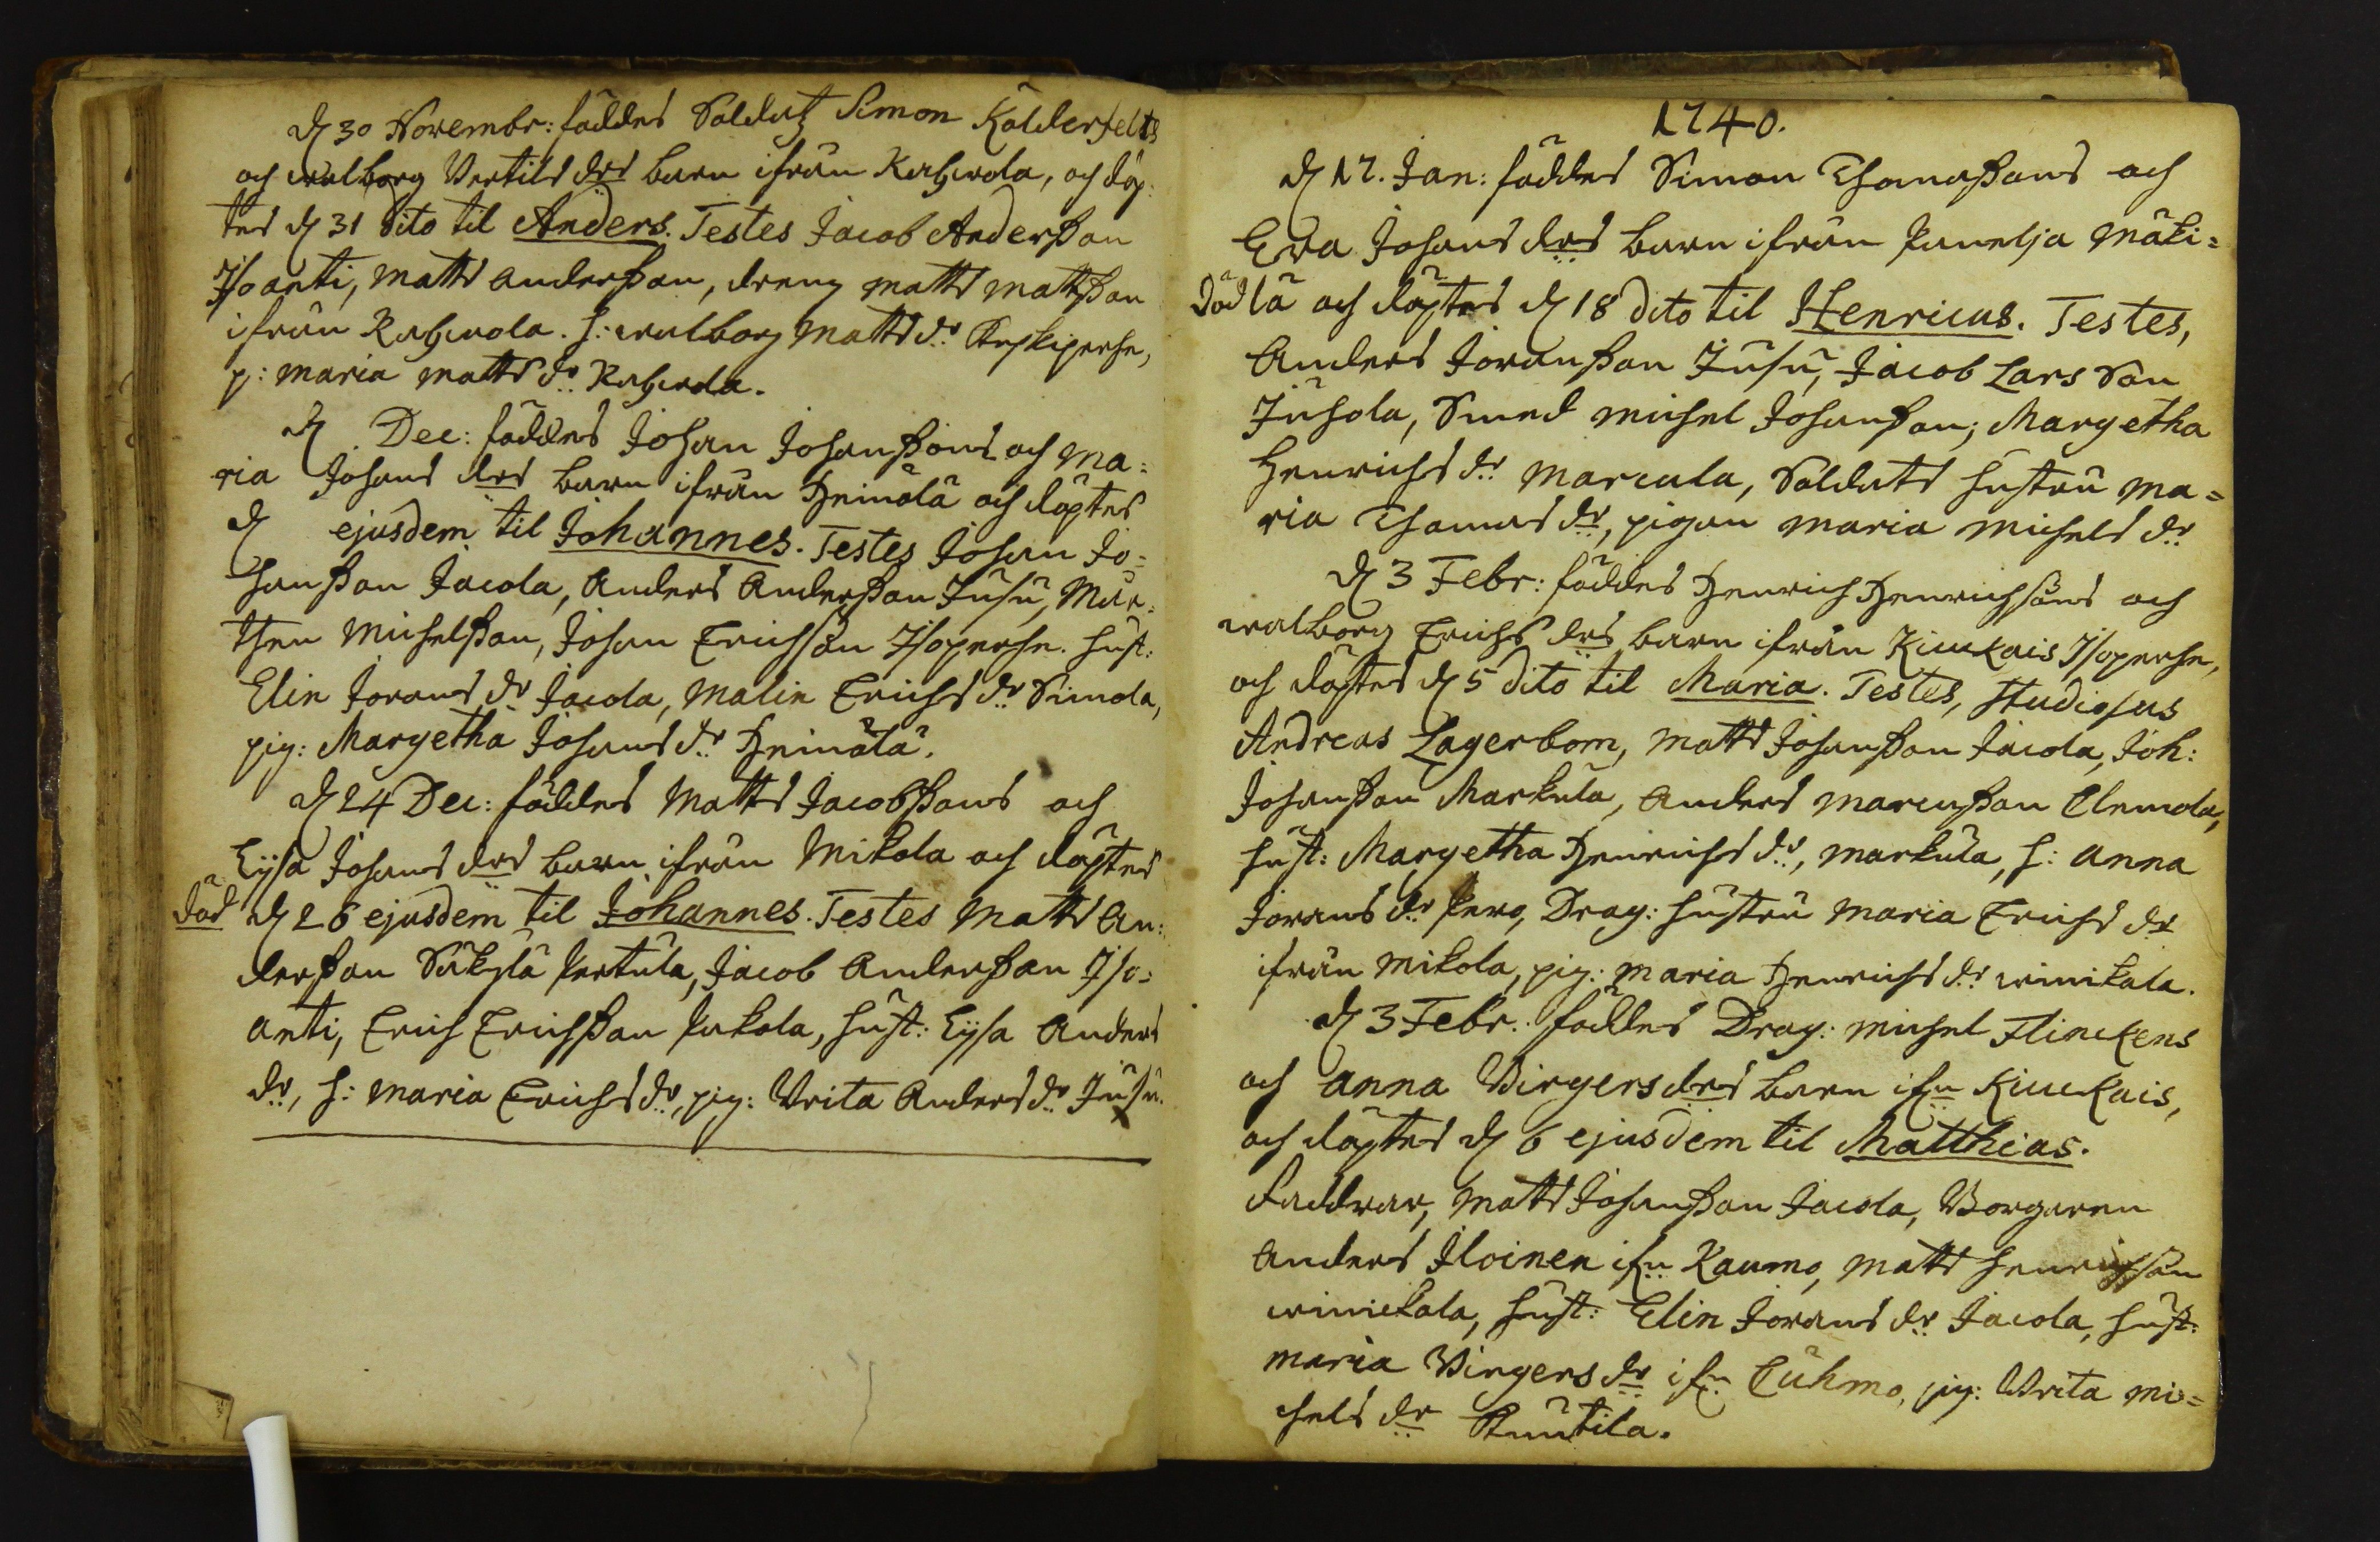 d. 30 Novembr: föddes Soldatz Simon Kölderfelts
och walborg Bertils drs barn ifrån Kahwola, och döp:
tes d. 31 dito til Anders. Testes Jacob Anderßon
Iso anti, Matts Anderßon, dreng Matts Mattßon
ifrån Kahwola. h: walborg Matts dr Keskiperhe,
p: Maria Matts dr Kahwola.
d. Dec: föddes Johan Johanßons och Ma:
ria Johans drs barn ifrån Heinälä och döptes
d. ejusdem til Johannes. Testes Johan Jo:
hanßon Jacola, Anders Anderßon Jusu, Mår:
then Michelßon, Johan Erichsson Isoperhe. hust:
Elin Jörans dr Jacola, Malin Erichs dr Simola,
pig: Margetha Johans dr Heinälä.
d. 24 Dec: föddes Matts Jacobßons och
Lijsa Johans drs barn ifrån Mikola och döptes
död d. 26 ejusdem til Johannes. Testes Matts An:
derßon Säkylä Pertula, Jacob Anderßon Iso:
anti, Erich Erichßon Pukola, hust: Lijsa Anders
dr, h: Maria Erichs dr, pig: Brita Anders dr Jusu.
1740.
d. 17. Jan: föddes Simon Thomaßons och
Ewa Johans drs barn ifrån Panelja Mäki=
död lä och döptes d. 18 dito til Henricus. Testes,
Anders Joranßon Jusu, Jacob Lars Son
Juhola, Smed Michel Johanßon, Margetha
Henrichs dr Marcula, Soldats hustru Ma=
ria Thomas dr, pigan Maria Michels dr
d. 3 Febr: föddes Henrich Henrichsons och
walborg Erichs drs barn ifrån Kiuckais Isoperhe,
och döptes d. 5 dito til Maria. Testes, Studiosus
Andreas Lagerbom, Matts Johanßon Jacola, Joh:
Johanßon Markula, Anders Marcusßon Clemola,
hust: Margetha Henrichs dr, Markula, h: Anna
Jörans dr Pero, Drag: hustru Maria Erichs dr
ifrån Mikola, pig: Maria Henrichs dr winikala.
d. 3 Febr: föddes Drag: Michel Flinckens
och Anna Birgers drs barn ifn Kiuckais,
och döptes d. 6 ejusdem til Matthias.
Faddrar, Matts Johanßon Jacola, Borgaren
Anders Iloinen ifn Raumo, Matts Henrichson
winickala, hust: Elin Jörans dr Jacola, hust:
Maria Birgers dr ifn Euhmo, pig: Brita Mi=
chels dr Ruutila.